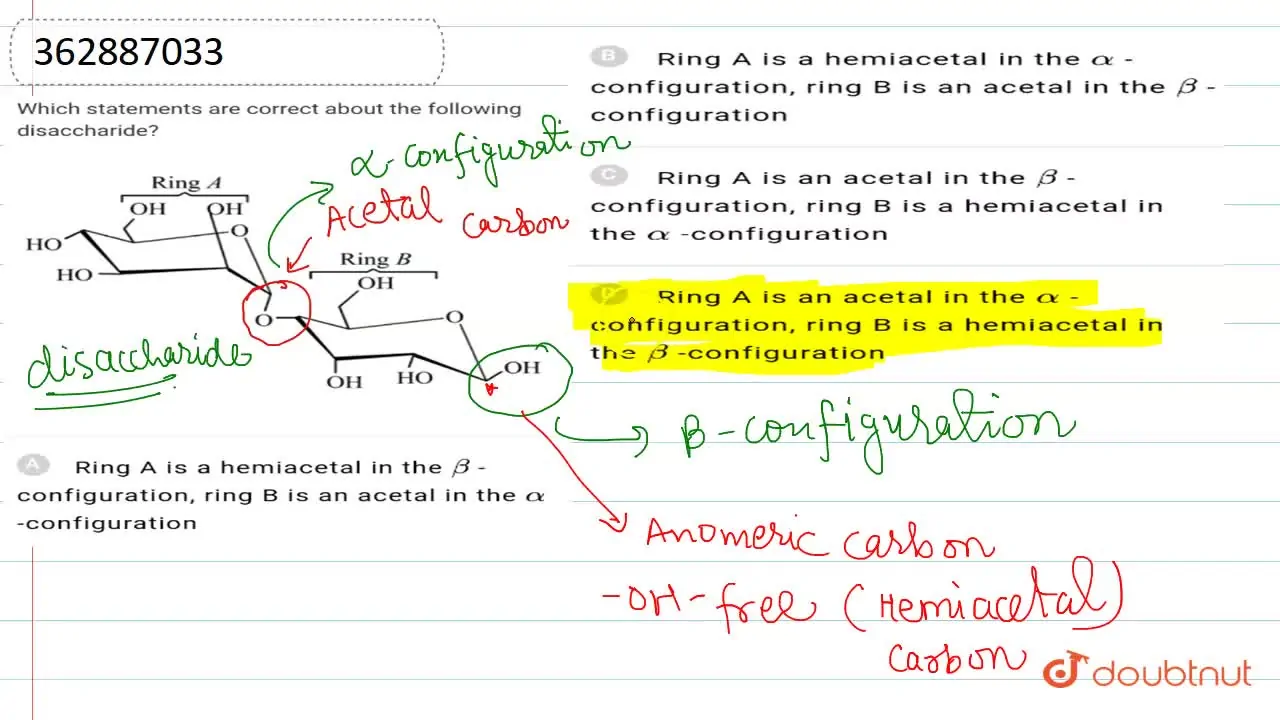 362887033
Which statements are correct about the following
disaccharide?
α-configuration
Acetal carbon
Ring A
OH OH
O
HO
HO
O
disaccharide
Ring B
OH
O
OH
HO
OH
A Ring A is a hemiacetal in the β -
configuration, ring B is an acetal in the α
-configuration
B Ring A is a hemiacetal in the α -
configuration, ring B is an acetal in the β -
configuration
C Ring A is an acetal in the β -
configuration, ring B is a hemiacetal in
the α -configuration
D Ring A is an acetal in the α -
configuration, ring B is a hemiacetal in
the β -configuration
β-configuration
Anomeric carbon
-OH- free (Hemiacetal)
carbon
doubtnut